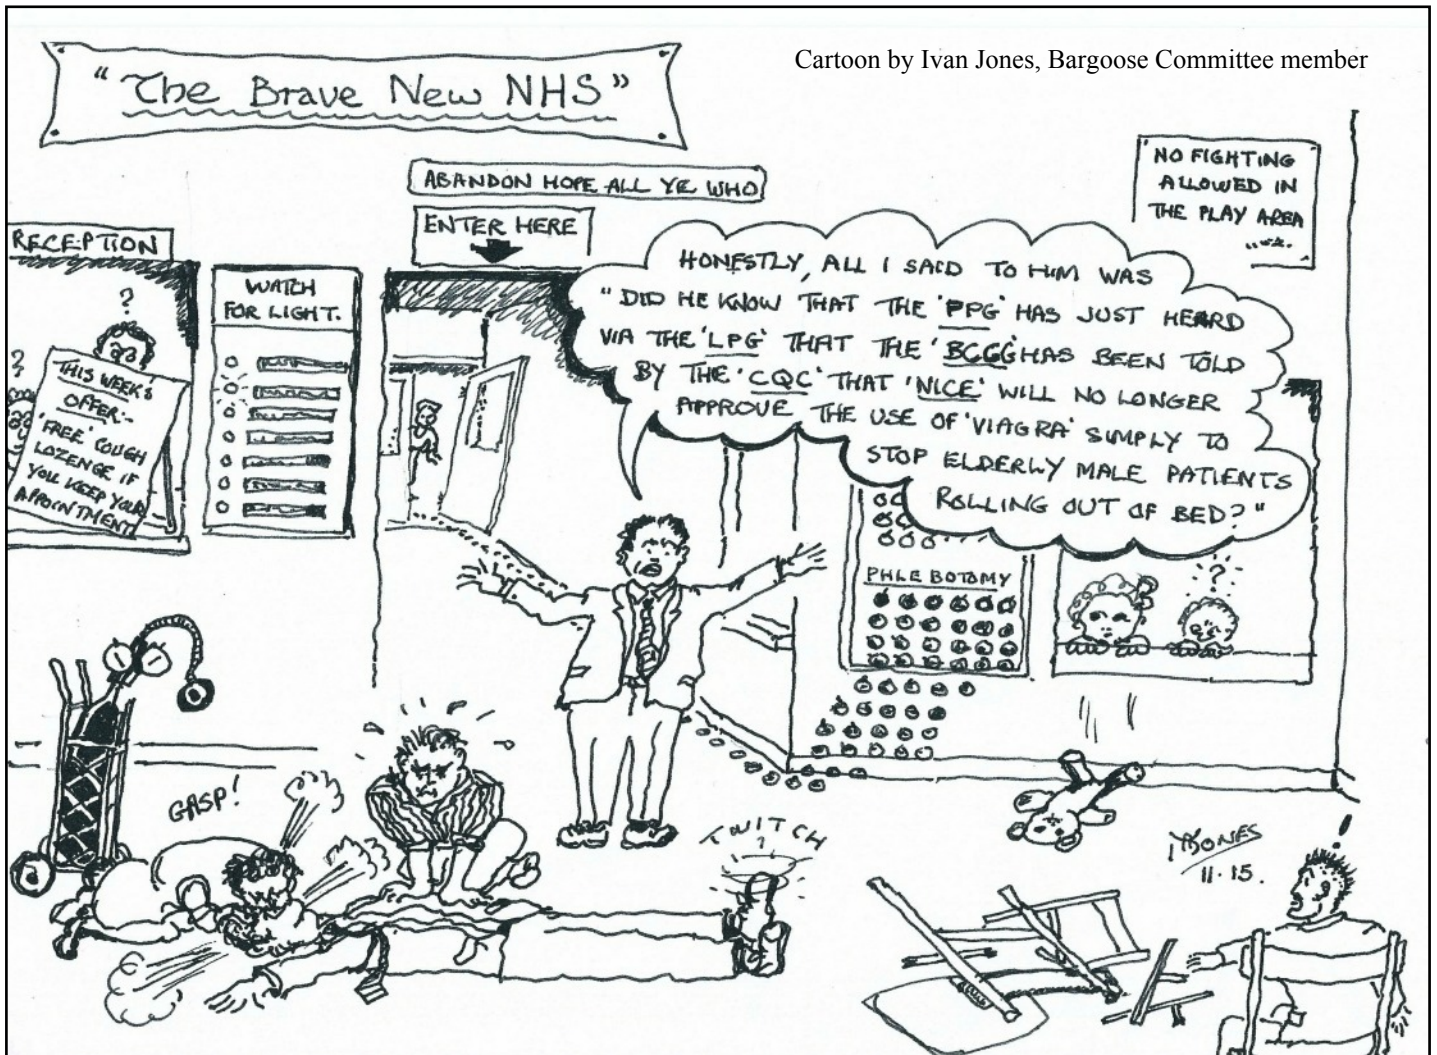 Cartoon by Ivan Jones, Bargoose Committee member
"The Brave New NHS"
ABANDON HOPE ALL YE WHO
ENTER HERE
'NO FIGHTING
ALLOWED IN
THE PLAY AREA
RECEPTION
WATCH
FOR LIGHT.
?
?
THIS WEEK'S
OFFER:-
'FREE' COUGH
LOZENGE IF
YOU KEEP YOUR
APPOINTMENT
HONESTLY, ALL I SAID TO HIM WAS
"DID HE KNOW THAT THE 'PPG' HAS JUST HEARD
VIA THE 'LPG' THAT THE 'BCGG' HAS BEEN TOLD
BY THE 'CQC' THAT 'NICE' WILL NO LONGER
APPROVE THE USE OF 'VIAGRA' SIMPLY TO
STOP ELDERLY MALE PATIENTS
ROLLING OUT OF BED?"
PHLEBOTOMY
?
GASP!
TWITCH
?
JONES
11.15.
!